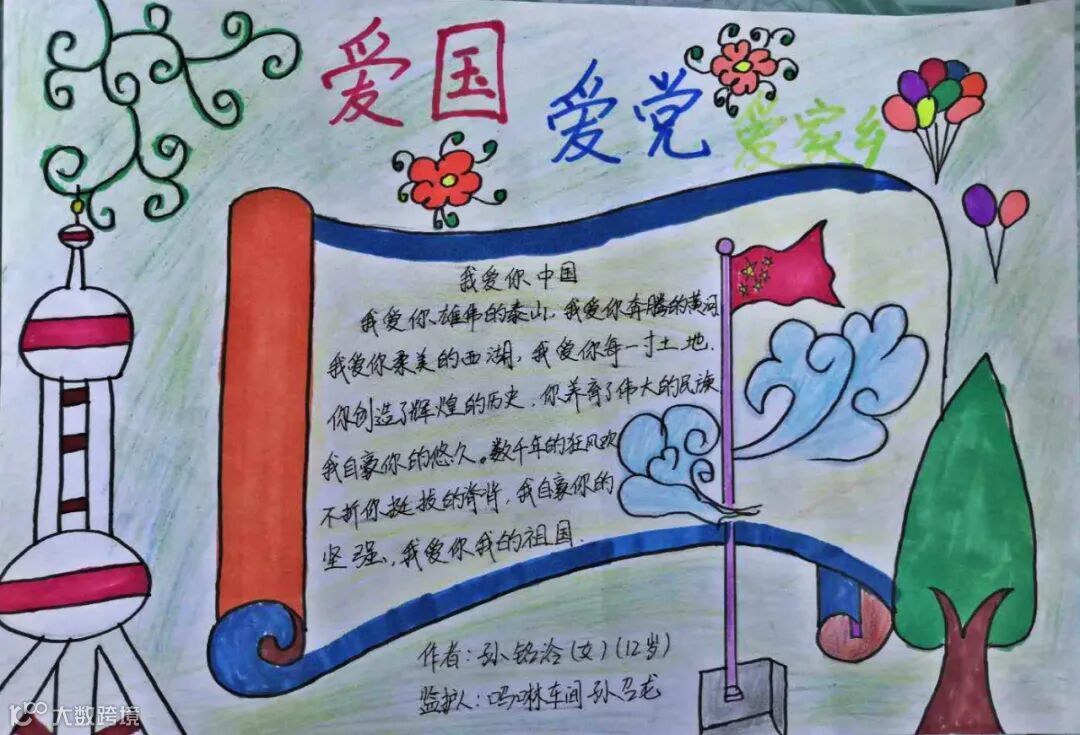 爱国
爱党
爱家乡
我爱你中国
我爱你雄伟的泰山，我爱你奔腾的黄河
我爱你柔美的西湖，我爱你每一寸土地.
你创造了辉煌的历史，你养育了伟大的民族
我自豪你的悠久。数千年的狂风吹
不折你挺拔的脊背，我自豪你的
坚强，我爱你我的祖国.
作者：孙铭泠（女）（12岁）
监护人：吗啉车间 孙召龙
大数跨境